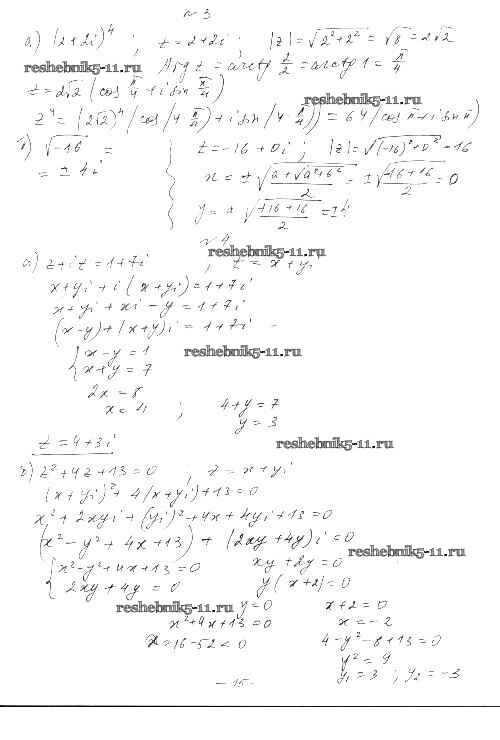 №3
а) (2+2i)^4 ; z=2+2i ; |z|=√(2²+2²)=√8=2√2
reshebnik5-11.ru Arg z=arctg 2/2=arctg 1=π/4
z=2√2(cos π/4+i sin π/4)
z^4=(2√2)^4(cos(4 π/4)+i sin(4 π/4))=64(cos π+i sin π)
б) √-16 = z=-16+0i ; |z|=√((-16)²+0²)=16
= ±4i x=±√((a+√(a²+b²))/2)=±√((-16+16)/2)=0
y=±√((+16+16)/2)=±4
№4
reshebnik5-11.ru
а) z+iz=1+7i ; z=x+yi
x+yi+i(x+yi)=1+7i
x+yi+xi-y=1+7i
(x-y)+(x+y)i=1+7i
{x-y=1 reshebnik5-11.ru
x+y=7
2x=8 4+y=7
x=4 ; y=3
z=4+3i reshebnik5-11.ru
б) z²+4z+13=0 ; z=x+yi
(x+yi)²+4(x+yi)+13=0
x²+2xyi+(yi)²+4x+4yi+13=0
(x²-y²+4x+13)+(2xy+4y)i=0
reshebnik5-11.ru
{x²-y²+4x+13=0 xy+2y=0
2xy+4y=0 y(x+2)=0
reshebnik5-11.ru y=0 x+2=0
x²+4x+13=0 x=-2
=16-52<0 4-y²-8+13=0
y²=9
y₁=3 ; y₂=-3
-15-